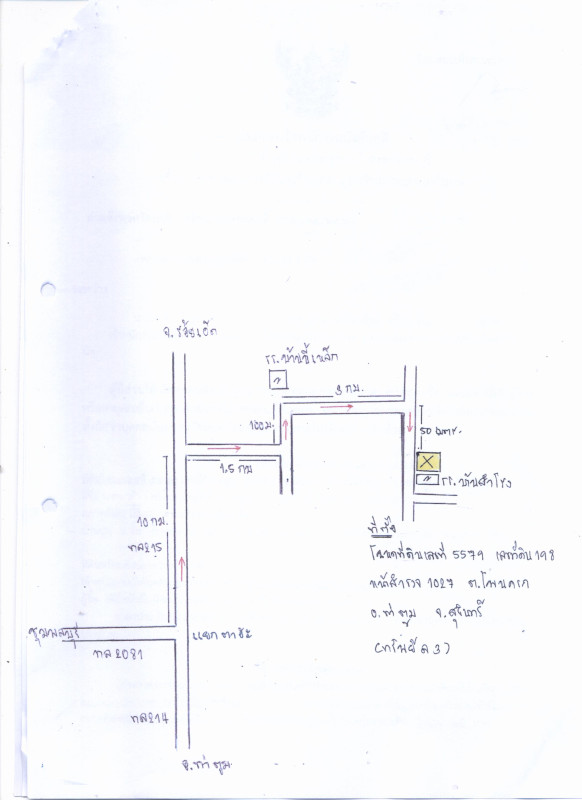 จ.ร้อยเอ็ด
รร.บ้านขี้เหล็ก
3 กม.
100ม.
50 เมตร.
1.5 กม
รร.บ้านสำโรง
10 กม.
ทล215
ที่ตั้ง
โฉนดที่ดินเลขที่ 5579 เลขที่ดิน 198
หน้าสำรวจ 1027 ต.โพนครก
อ.ท่าตูม จ.สุรินทร์
ชุมพลบุรี
แยกตาฮะ
ทล 2081
ทล214
อ.ท่าตูม